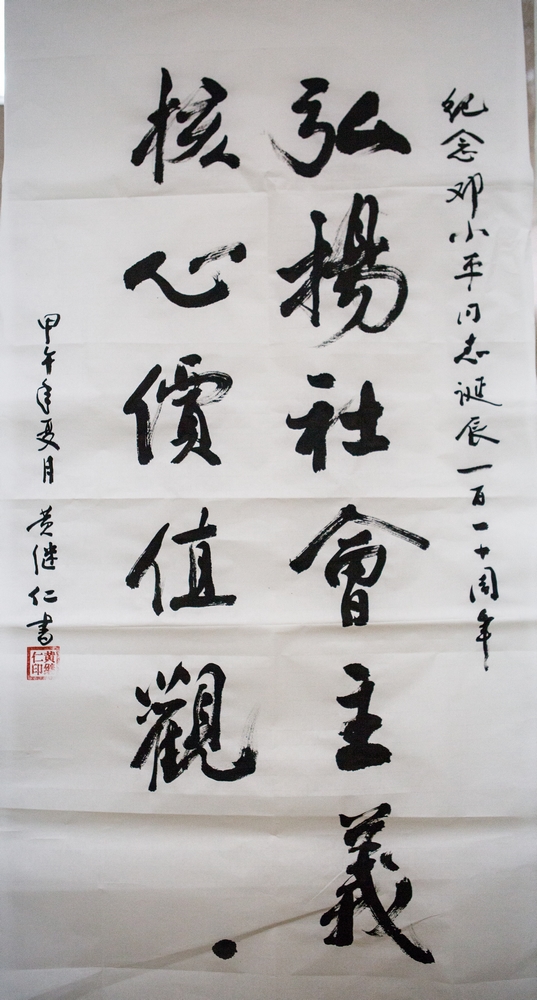 纪念邓小平同志诞辰一百一十周年
弘揚社會主義
核心價值觀
甲午年夏月 黄继仁書
黄继仁印